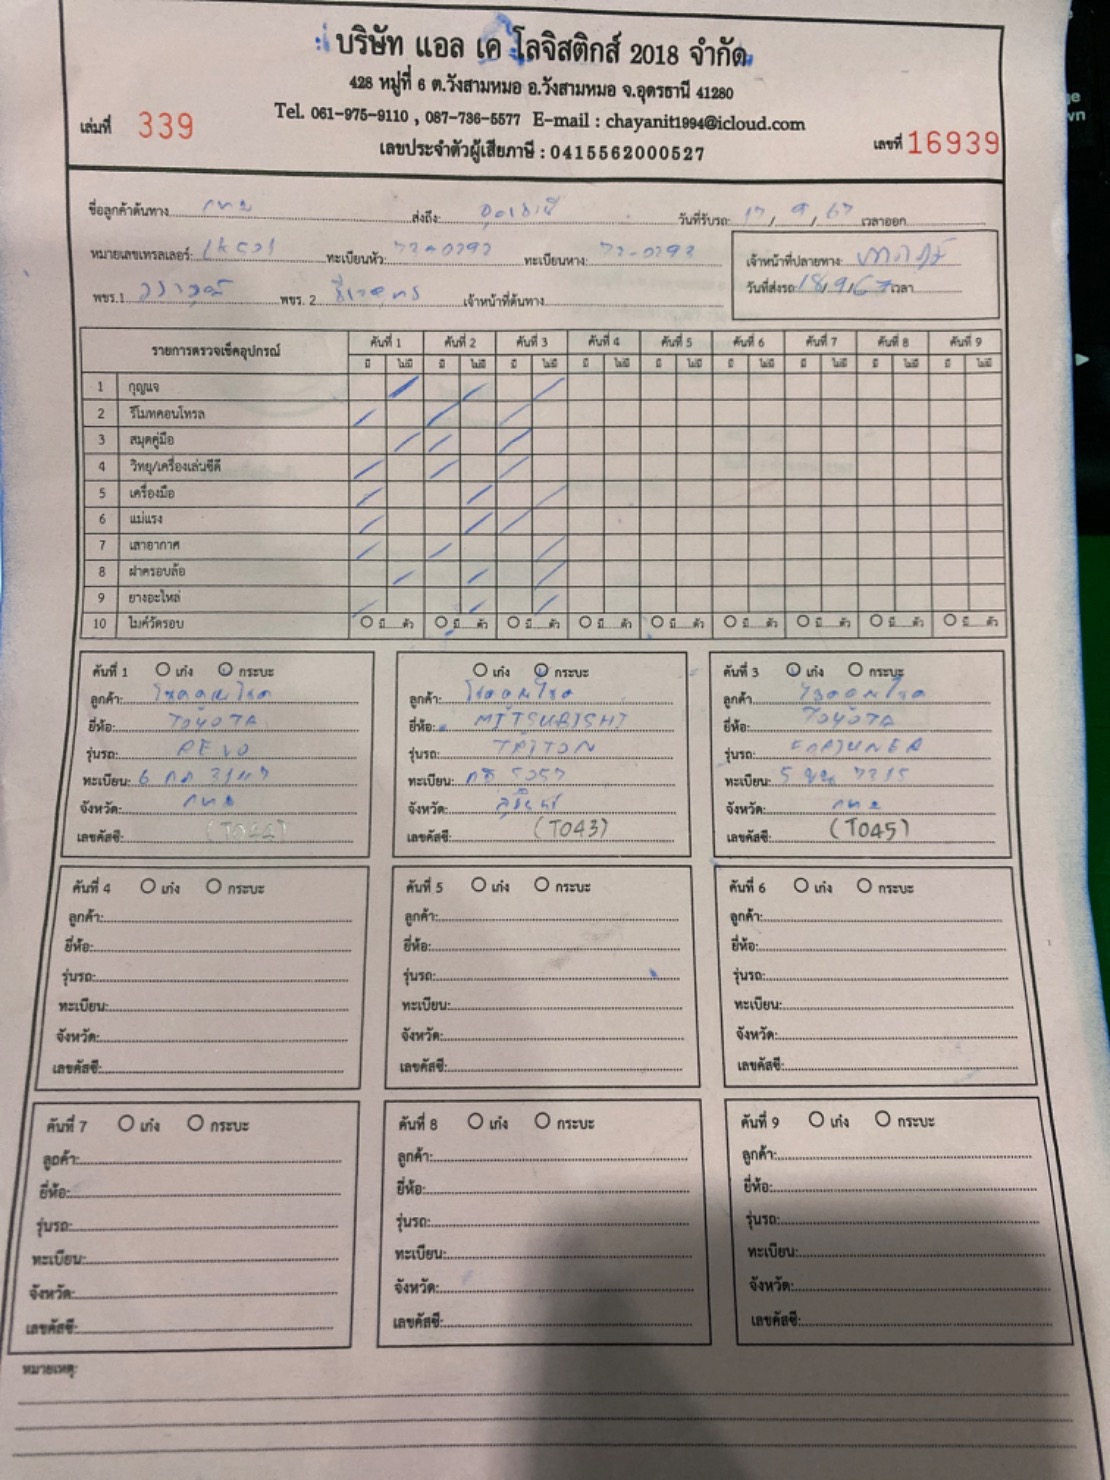 บริษัท แอล เค โลจิสติกส์ 2018 จำกัด
428 หมู่ที่ 6 ต.วังสามหมอ อ.วังสามหมอ จ.อุดรธานี 41280
Tel. 061-975-9110 , 087-736-5577 E-mail : chayanit1994@icloud.com
เล่มที่ 339 เลขประจำตัวผู้เสียภาษี : 0415562000527 เลขที่ 16939
ชื่อลูกค้าต้นทาง กทม ส่งถึง: อุดรธานี วันที่รับรถ: 17/9/67 เวลาออก
หมายเลขเทรลเลอร์: ทะเบียนหัว: 72-0292 ทะเบียนหาง: 72-0293 เจ้าหน้าที่ปลายทาง:
พขร.1 พขร. 2 เจ้าหน้าที่ต้นทาง วันที่ส่งรถ 18/9/67 เวลา
รายการตรวจเช็คอุปกรณ์ คันที่ 1 คันที่ 2 คันที่ 3 คันที่ 4 คันที่ 5 คันที่ 6 คันที่ 7 คันที่ 8 คันที่ 9
มี ไม่มี มี ไม่มี มี ไม่มี มี ไม่มี มี ไม่มี มี ไม่มี มี ไม่มี มี ไม่มี มี ไม่มี
1 กุญแจ
2 รีโมทคอนโทรล
3 สมุดคู่มือ
4 วิทยุ/เครื่องเล่นซีดี
5 เครื่องมือ
6 แม่แรง
7 เสาอากาศ
8 ฝาครอบล้อ
9 ยางอะไหล่
10 ไมค์วัดรอบ มี ตัว มี ตัว มี ตัว มี ตัว มี ตัว มี ตัว มี ตัว มี ตัว มี ตัว
คันที่ 1 เก๋ง กระบะ
ลูกค้า:
ยี่ห้อ: TOYOTA
รุ่นรถ: REVO
ทะเบียน:
จังหวัด: กทม
เลขคัสซี: (T044)
เก๋ง กระบะ
ลูกค้า:
ยี่ห้อ: MITSUBISHI
รุ่นรถ: TRITON
ทะเบียน:
จังหวัด:
เลขคัสซี: (T043)
คันที่ 3 เก๋ง กระบะ
ลูกค้า
ยี่ห้อ: TOYOTA
รุ่นรถ: FORTUNER
ทะเบียน:
จังหวัด: กทม
เลขคัสซี: (T045)
คันที่ 4 เก๋ง กระบะ
ลูกค้า:
ยี่ห้อ:
รุ่นรถ:
ทะเบียน:
จังหวัด:
เลขคัสซี:
คันที่ 5 เก๋ง กระบะ
ลูกค้า:
ยี่ห้อ:
รุ่นรถ:
ทะเบียน:
จังหวัด:
เลขคัสซี:
คันที่ 6 เก๋ง กระบะ
ลูกค้า:
ยี่ห้อ:
รุ่นรถ:
ทะเบียน:
จังหวัด:
เลขคัสซี:
คันที่ 7 เก๋ง กระบะ
ลูกค้า:
ยี่ห้อ:
รุ่นรถ:
ทะเบียน:
จังหวัด:
เลขคัสซี:
คันที่ 8 เก๋ง กระบะ
ลูกค้า:
ยี่ห้อ:
รุ่นรถ:
ทะเบียน:
จังหวัด:
เลขคัสซี:
คันที่ 9 เก๋ง กระบะ
ลูกค้า:
ยี่ห้อ:
รุ่นรถ:
ทะเบียน:
จังหวัด:
เลขคัสซี:
หมายเหตุ: